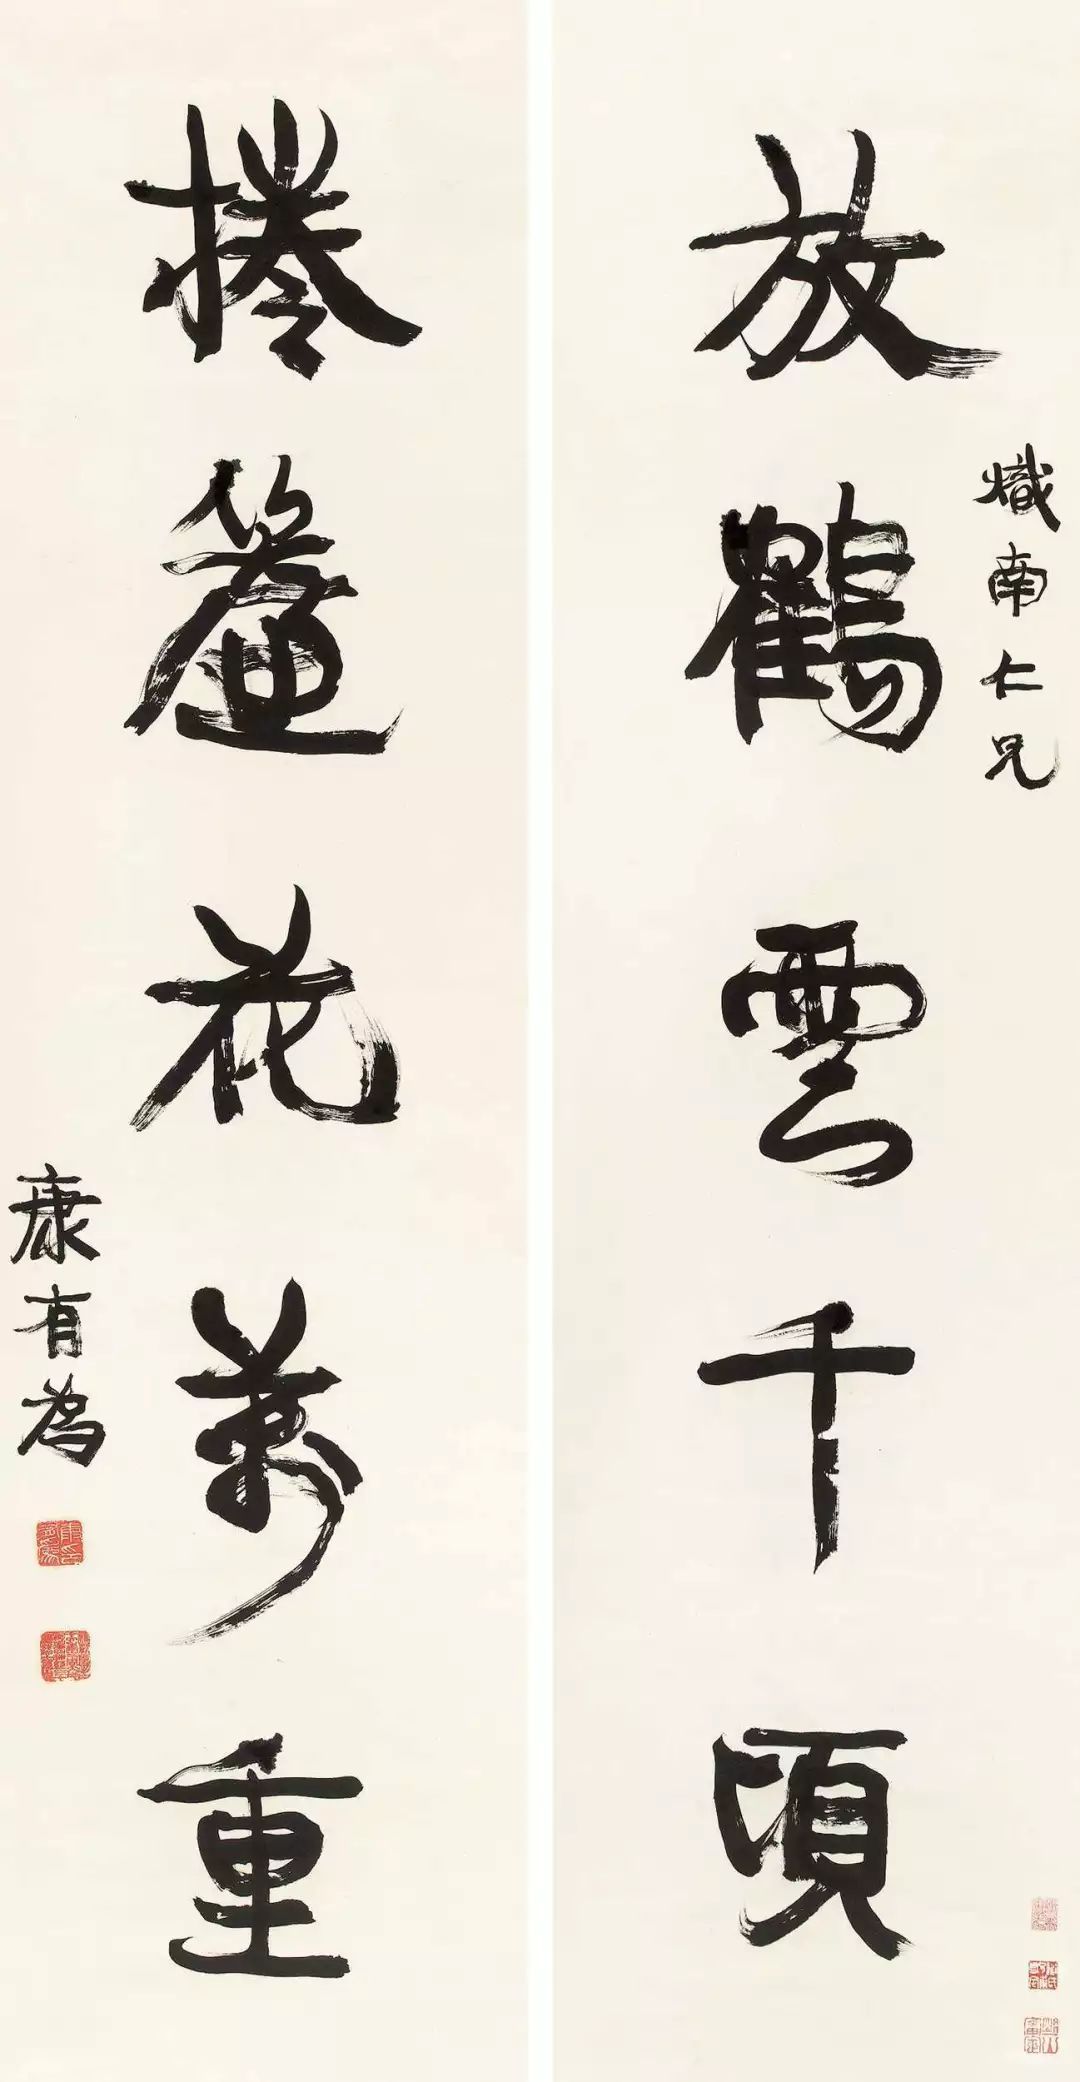 熾南仁兄
放鶴雲千頃
捲簾花萬重
康有為